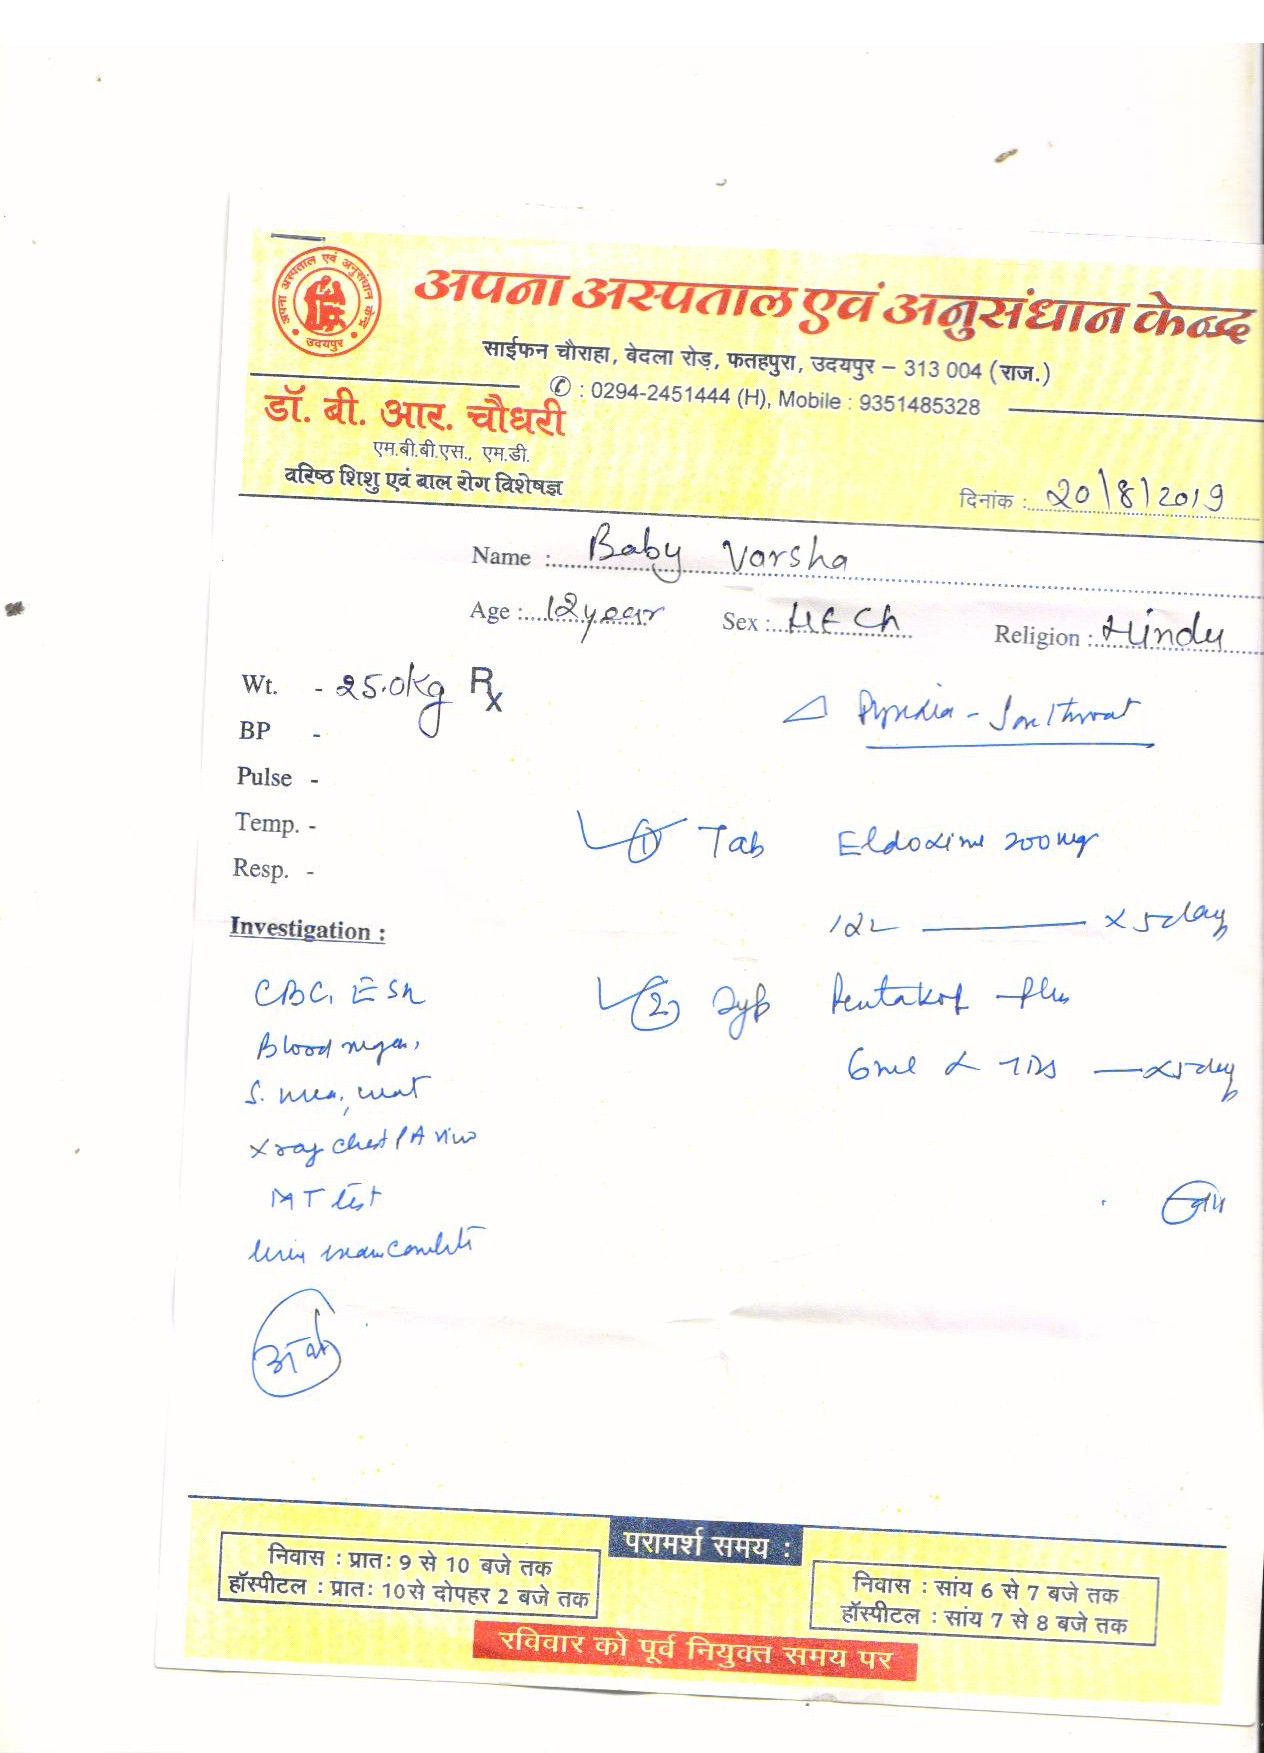 अपना अस्पताल एवं अनुसंधान केन्द्र
उदयपुर
अपना अस्पताल एवं अनुसंधान केन्द्र
साईफन चौराहा, बेदला रोड़, फतहपुरा, उदयपुर – 313 004 (राज.)
✆ : 0294-2451444 (H), Mobile : 9351485328
डॉ. बी. आर. चौधरी
एम.बी.बी.एस., एम.डी.
वरिष्ठ शिशु एवं बाल रोग विशेषज्ञ
दिनांक : 20/8/2019
Name : Baby Varsha
Age : 12 year Sex : Religion : Hindu
Wt. - 25.0kg Rx
BP -
Sore throat
Pulse -
Temp. -
① Tab Eldoxime 200mg
Resp. -
Investigation :
x 5 day
CBC, ESR
② Syp Pentakof Plus
Blood sugar,
6ml x TDS — x 5 day
S. urea, creat
X ray chest PA view
MT test
Urine exam complete
परामर्श समय :
निवास : प्रातः 9 से 10 बजे तक
हॉस्पीटल : प्रातः 10 से दोपहर 2 बजे तक
निवास : सांय 6 से 7 बजे तक
हॉस्पीटल : सांय 7 से 8 बजे तक
रविवार को पूर्व नियुक्त समय पर